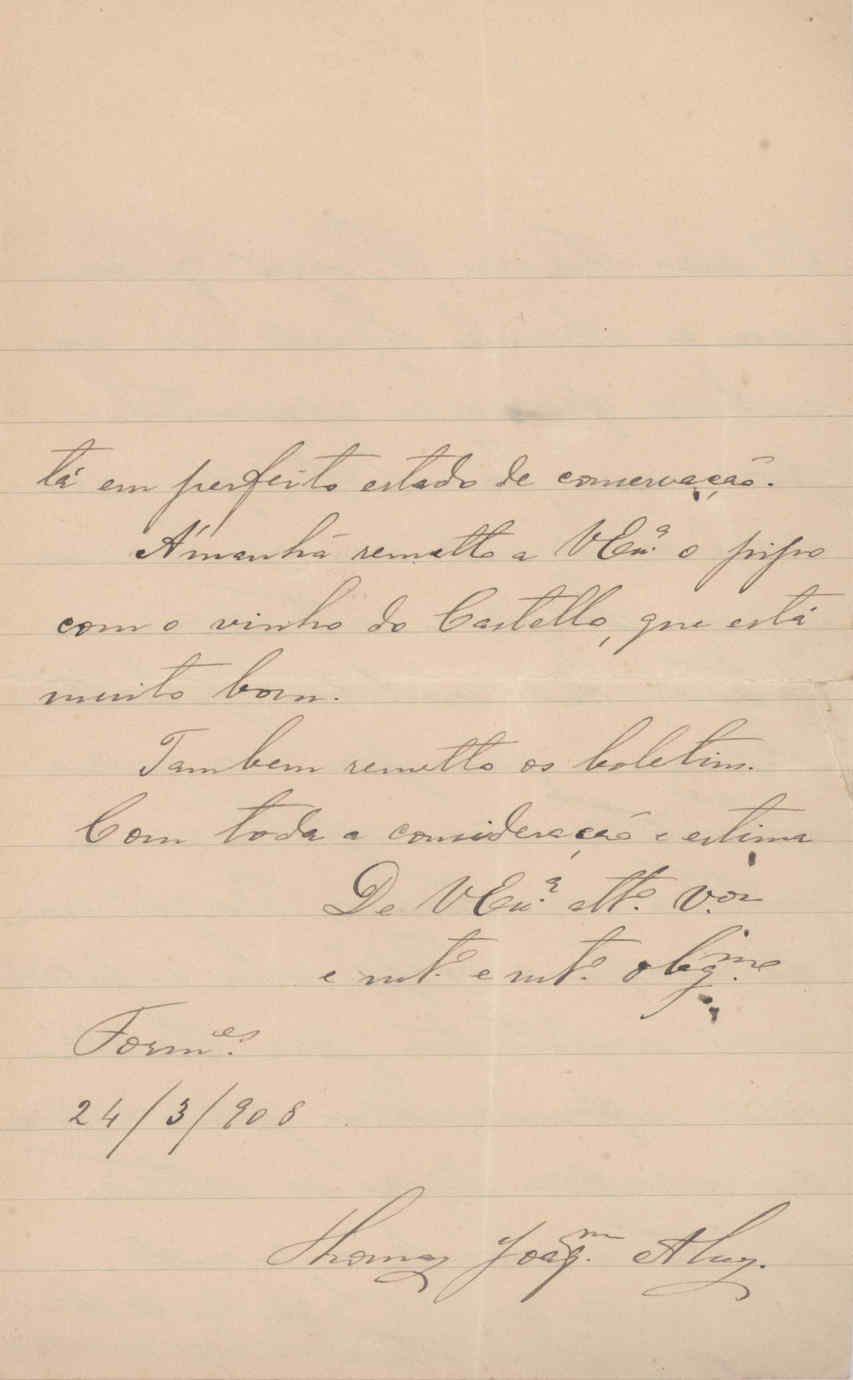 tá em perfeito estado de conservação.
A'manhã remetto a V Exª o pipo
com o vinho do Castello, que está
muito bom.
Tambem remetto os boletins.
Com toda a consideração e estima
De V Exª attº V.ºr
e mtº e mtº obgmo
Formes.
24/3/908
Thomaz Joaqm. Alvz.